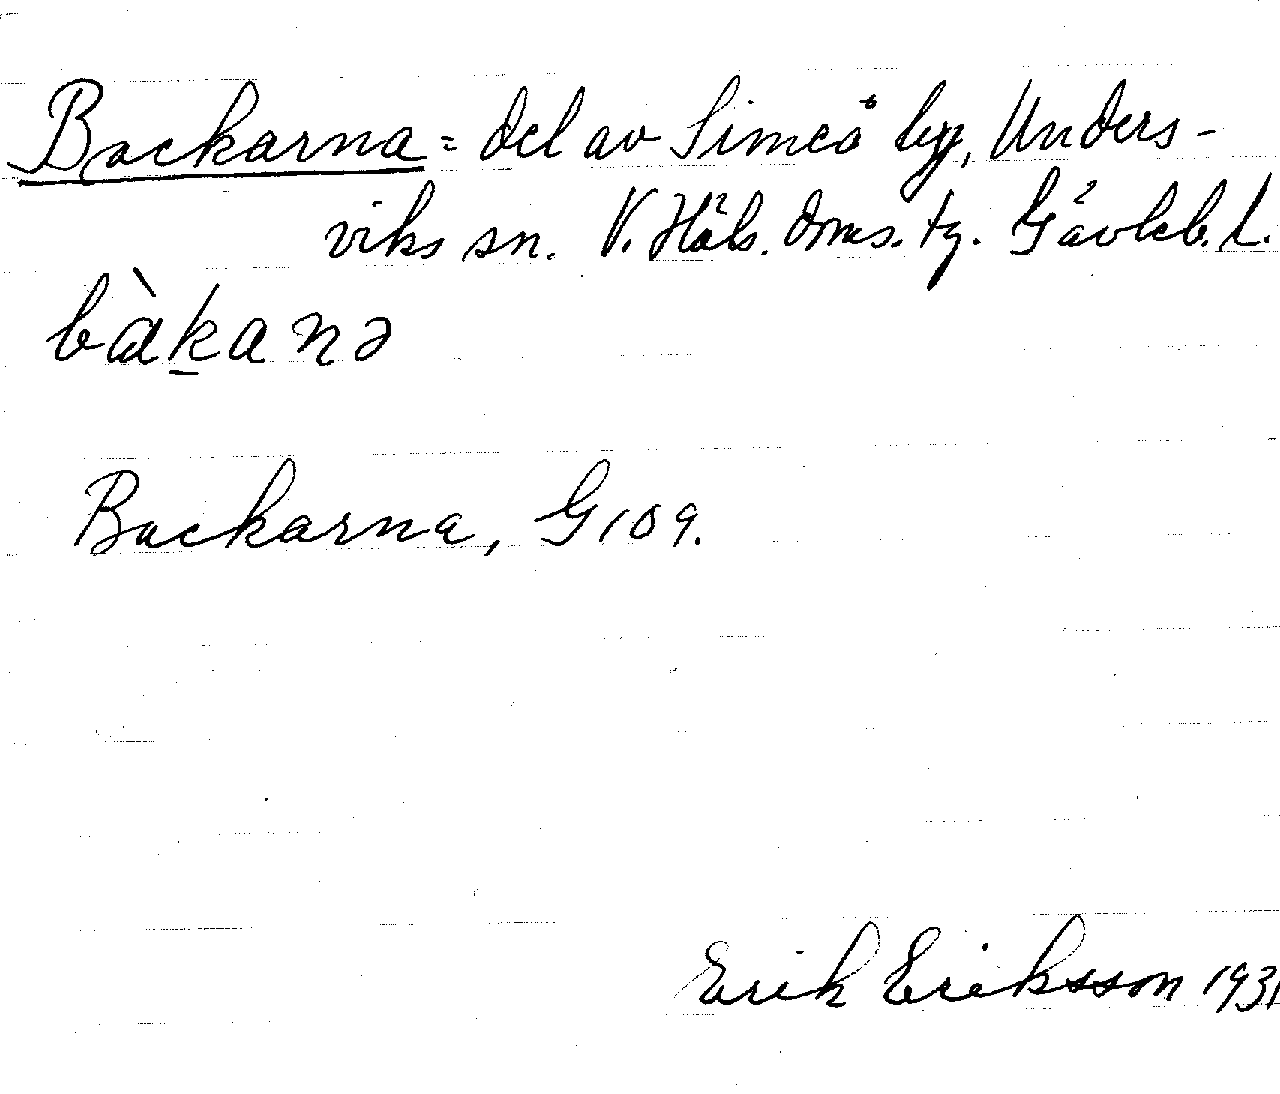 Backarna = del av Simeå by, Unders-
viks sn. V. Häls. doms. tg. Gävleb. L.
bàkanə
Backarna, G109.
Erik Eriksson 1931